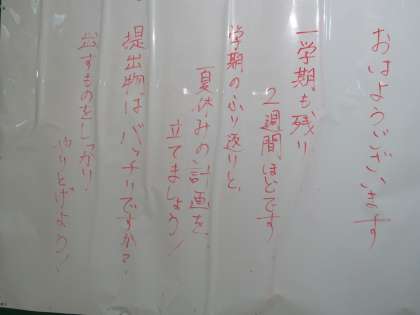 おはようございます
一学期も残り
2週間ほどです
学期のふり返りと、
夏休みの計画を
立てましょう!
提出物はバッチリですか?
出すものをしっかり
やりとげよう!